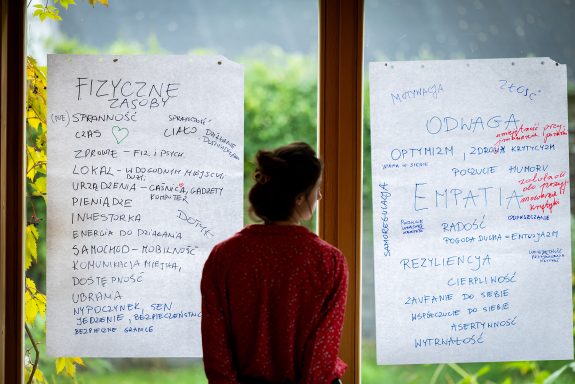 FIZYCZNE
ZASOBY
(NIE) SPRAWNOŚĆ
SPRAWCZOŚĆ
CZAS
CIAŁO
DZIAŁANIE
ZDROWIE - FIZ I PSYCH
LOKAL - W DOGODNYM MIEJSCU
URZĄDZENIA - GAŚNICA, GADŻETY
KOMPUTER
PIENIĄDZE
DOTYK
INWESTORKA
ENERGIA DO DZIAŁANIA
SAMOCHÓD - MOBILNOŚĆ
KOMUNIKACJA MIEJSKA,
DOSTĘPNOŚĆ
UBRANIA
WYPOCZYNEK, SEN
JEDZENIE, BEZPIECZEŃSTWO
BEZPIECZNE GRANICE
MOTYWACJA
ZŁOŚĆ
ODWAGA
OPTYMIZM, ZDROWY KRYTYCYZM
WIARA W SIEBIE
POCZUCIE HUMORU
EMPATIA
SAMOREGULACJA
POCZUCIE
WŁASNEJ
WARTOŚCI
RADOŚĆ
ODPUSZCZANIE
POGODA DUCHA - ENTUZJAZM
REZYLIENCJA
UMIEJĘTNOŚĆ
PRZYJMOWANIA
KRYTYKI
CIERPLIWOŚĆ
ZAUFANIE DO SIEBIE
WSPÓŁCZUCIE DO SIEBIE
ASERTYWNOŚĆ
WYTRWAŁOŚĆ